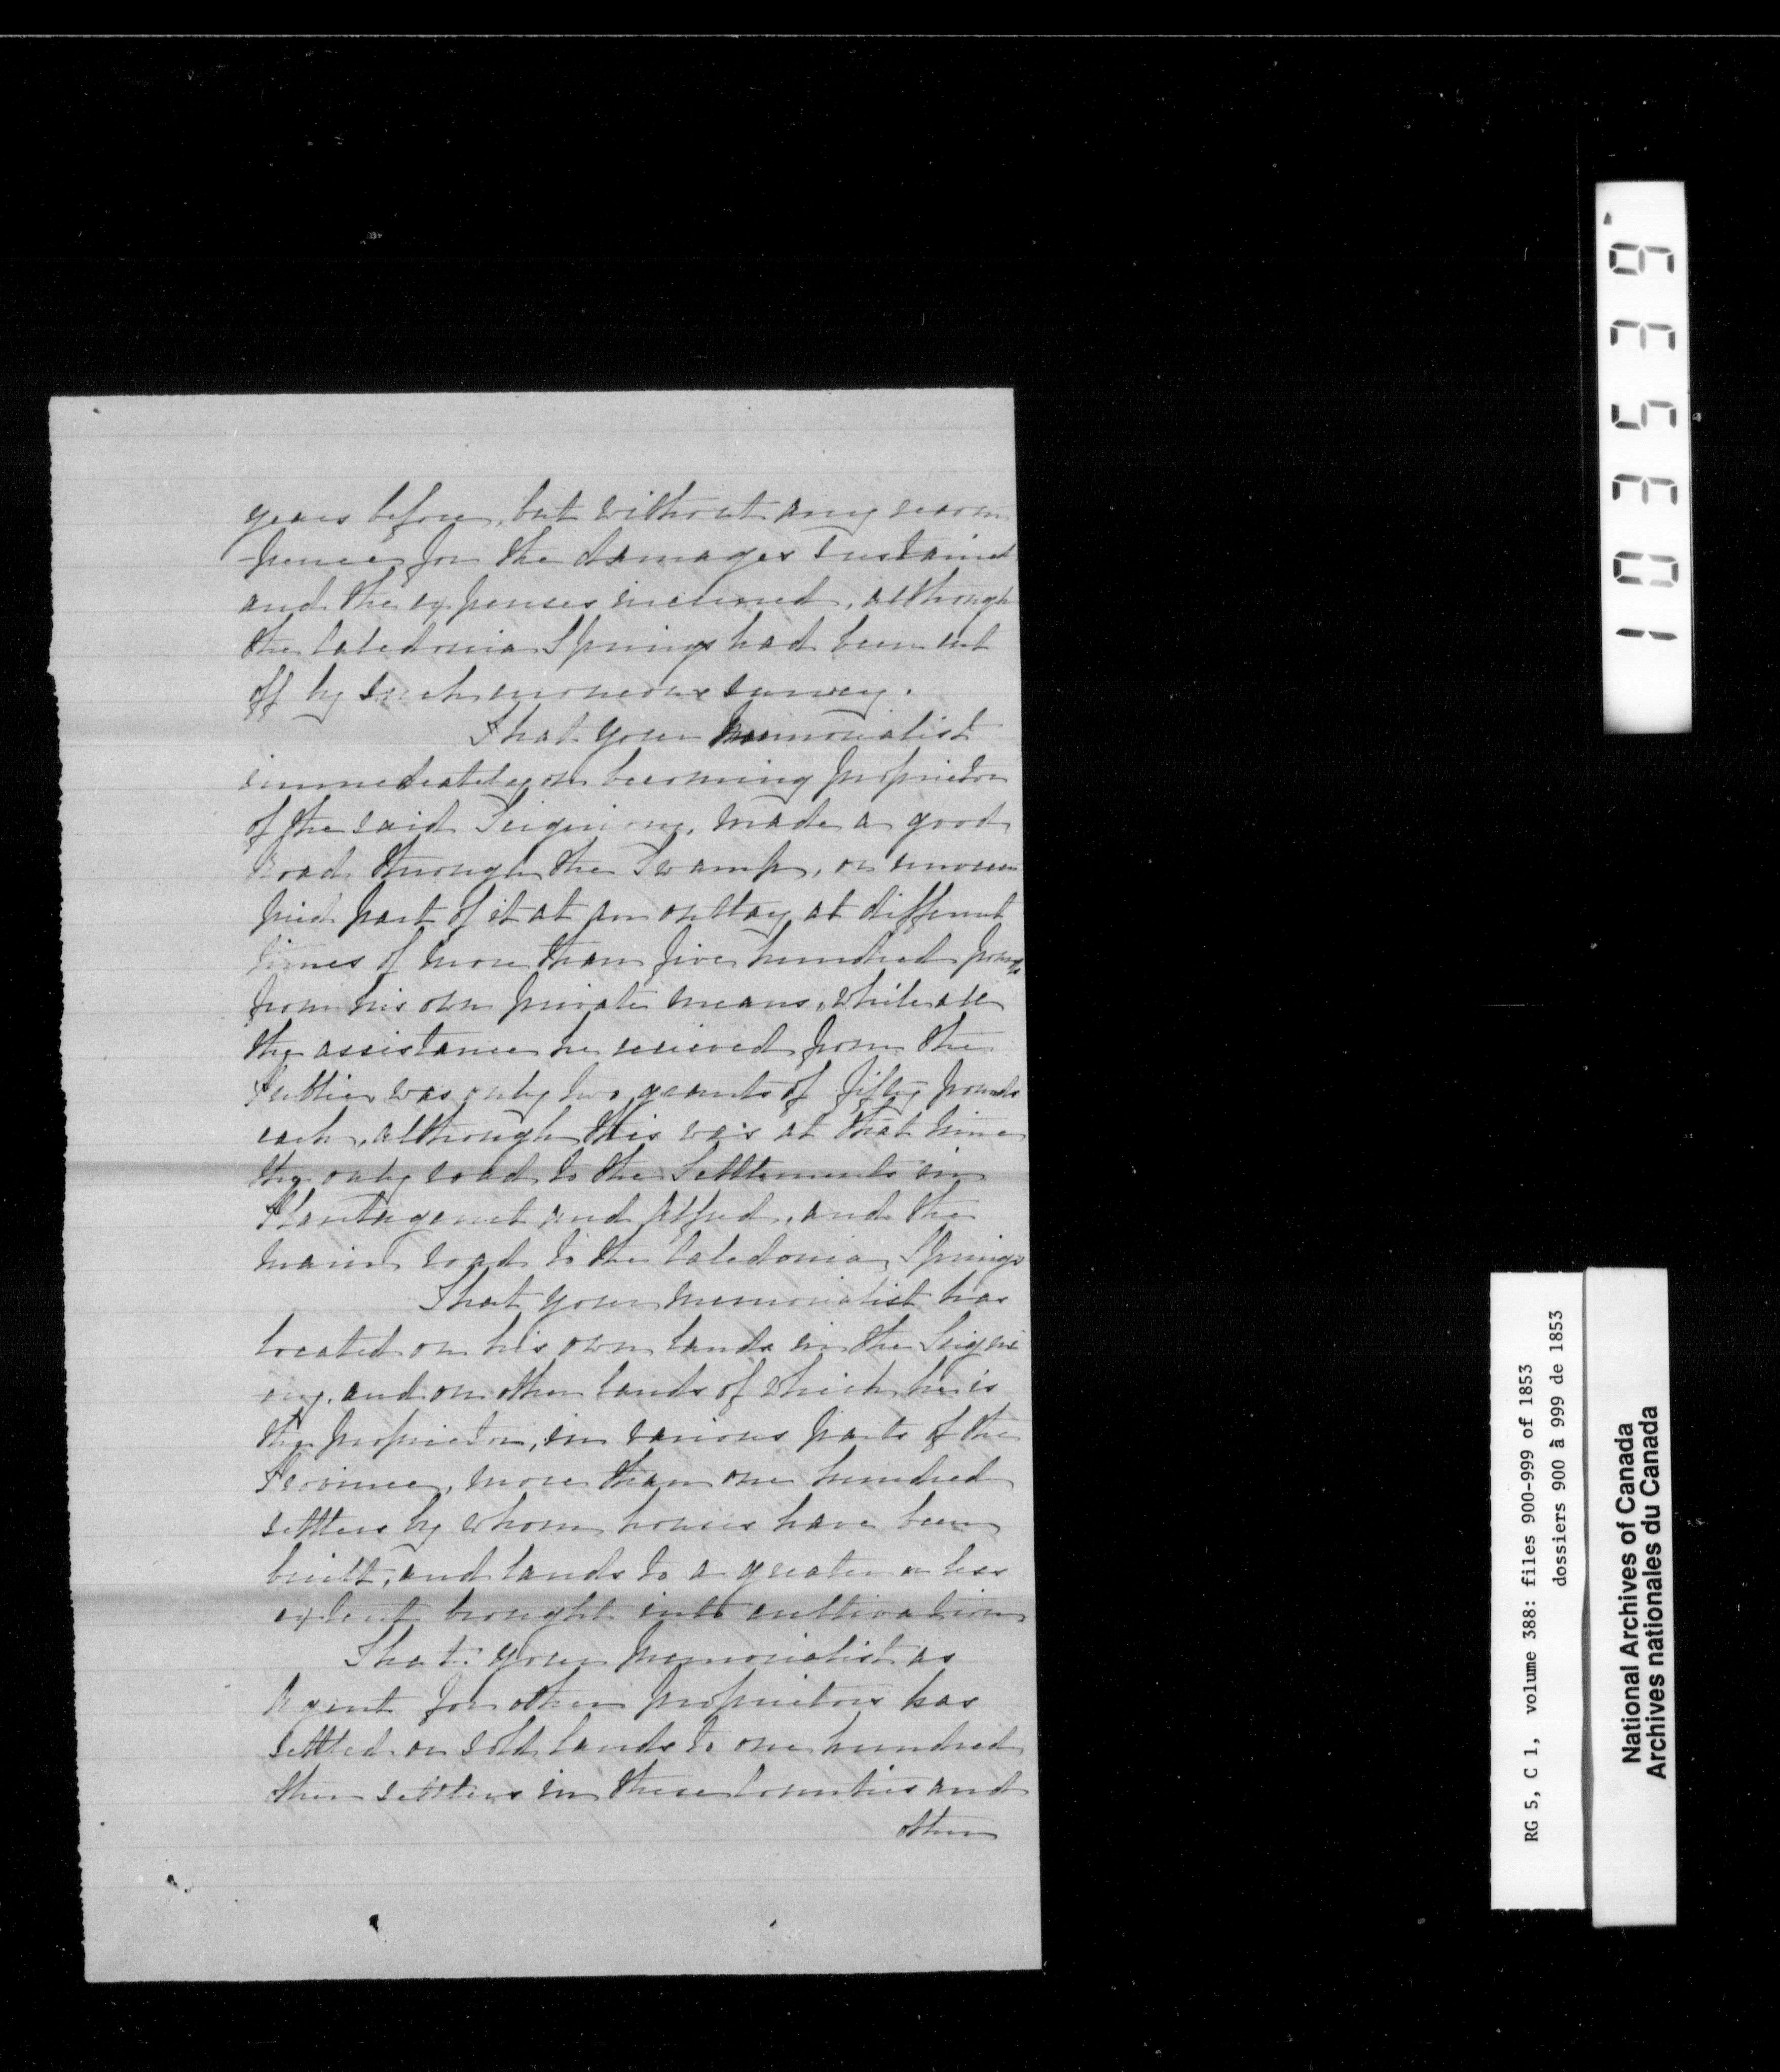 years before, but without any recom
-pence for the damages sustained
and the expenses incurred, although
the Caledonia Springs had been cut
off by such erroneous survey.
That your memorialist
immediately on becoming proprietor
of the said Seigniory, made a good
Road through the Swamp, or unoccu
pied part of it at an outlay at different
times of more than five hundred pounds
from his own private means, while all
the assistance he recieved from the
Public was only two grants of fifty pounds
each, although this was at that time
the only road to the Settlements in
Plantagenet and Alfred, and the
main road to the Caledonia Springs
That your memorialist has
located on his own lands in the Seigni
ory, and on other lands of which he is
the proprietor, in various parts of the
Province, more than one hundred
settlers by whom houses have been
built, and lands to a greater or less
extent brought into cultivation
That your memorialist as
Agent for other proprietors has
settled or sold lands to one hundred
other settlers in these Counties and
other
1 0 3 5 3 9
RG 5, C 1, volume 388: files 900-999 of 1853
dossiers 900 à 999 de 1853
National Archives of Canada
Archives nationales du Canada